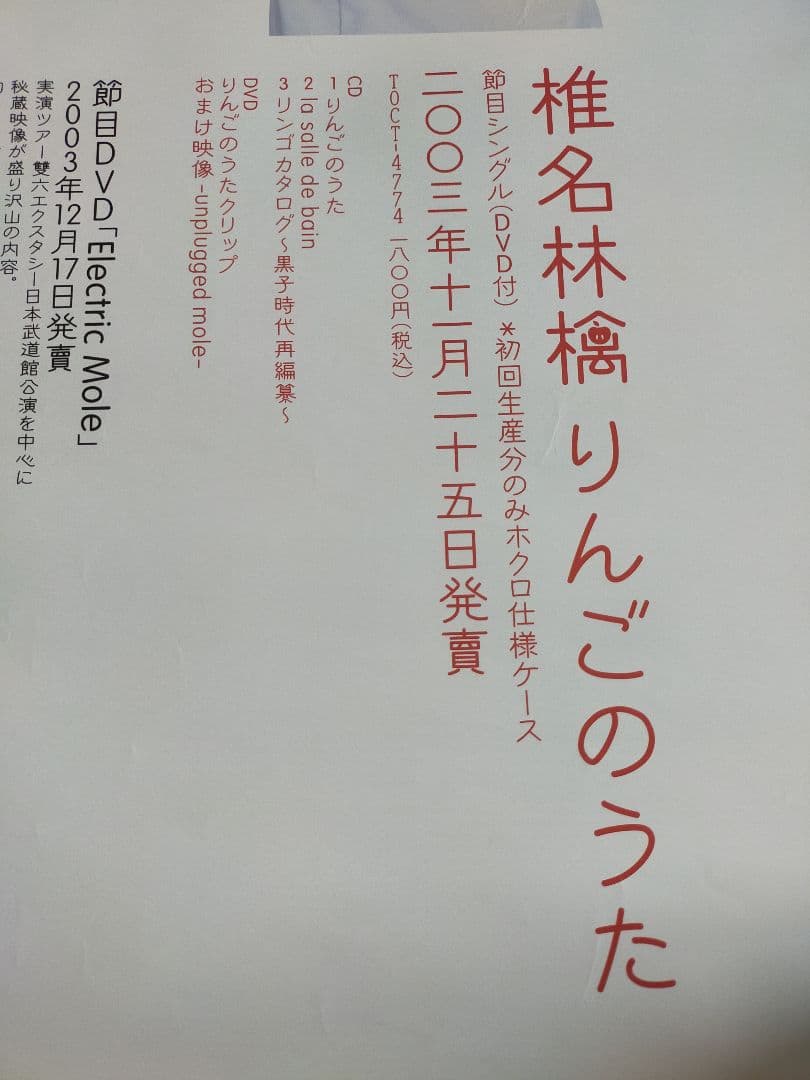 椎名林檎 りんごのうた
節目シングル(DVD付) *初回生産分のみホクロ仕様ケース
二〇〇三年十一月二十五日発賣
TOCT-4774 一八〇〇円(税込)
CD
1 りんごのうた
2 la salle de bain
3 リンゴカタログ〜黒子時代再編纂〜
DVD
りんごのうたクリップ
おまけ映像-unplugged mole-
節目DVD「Electric Mole」
2003年12月17日発賣
実演ツアー雙六エクスタシー日本武道館公演を中心に
秘蔵映像が盛り沢山の内容。